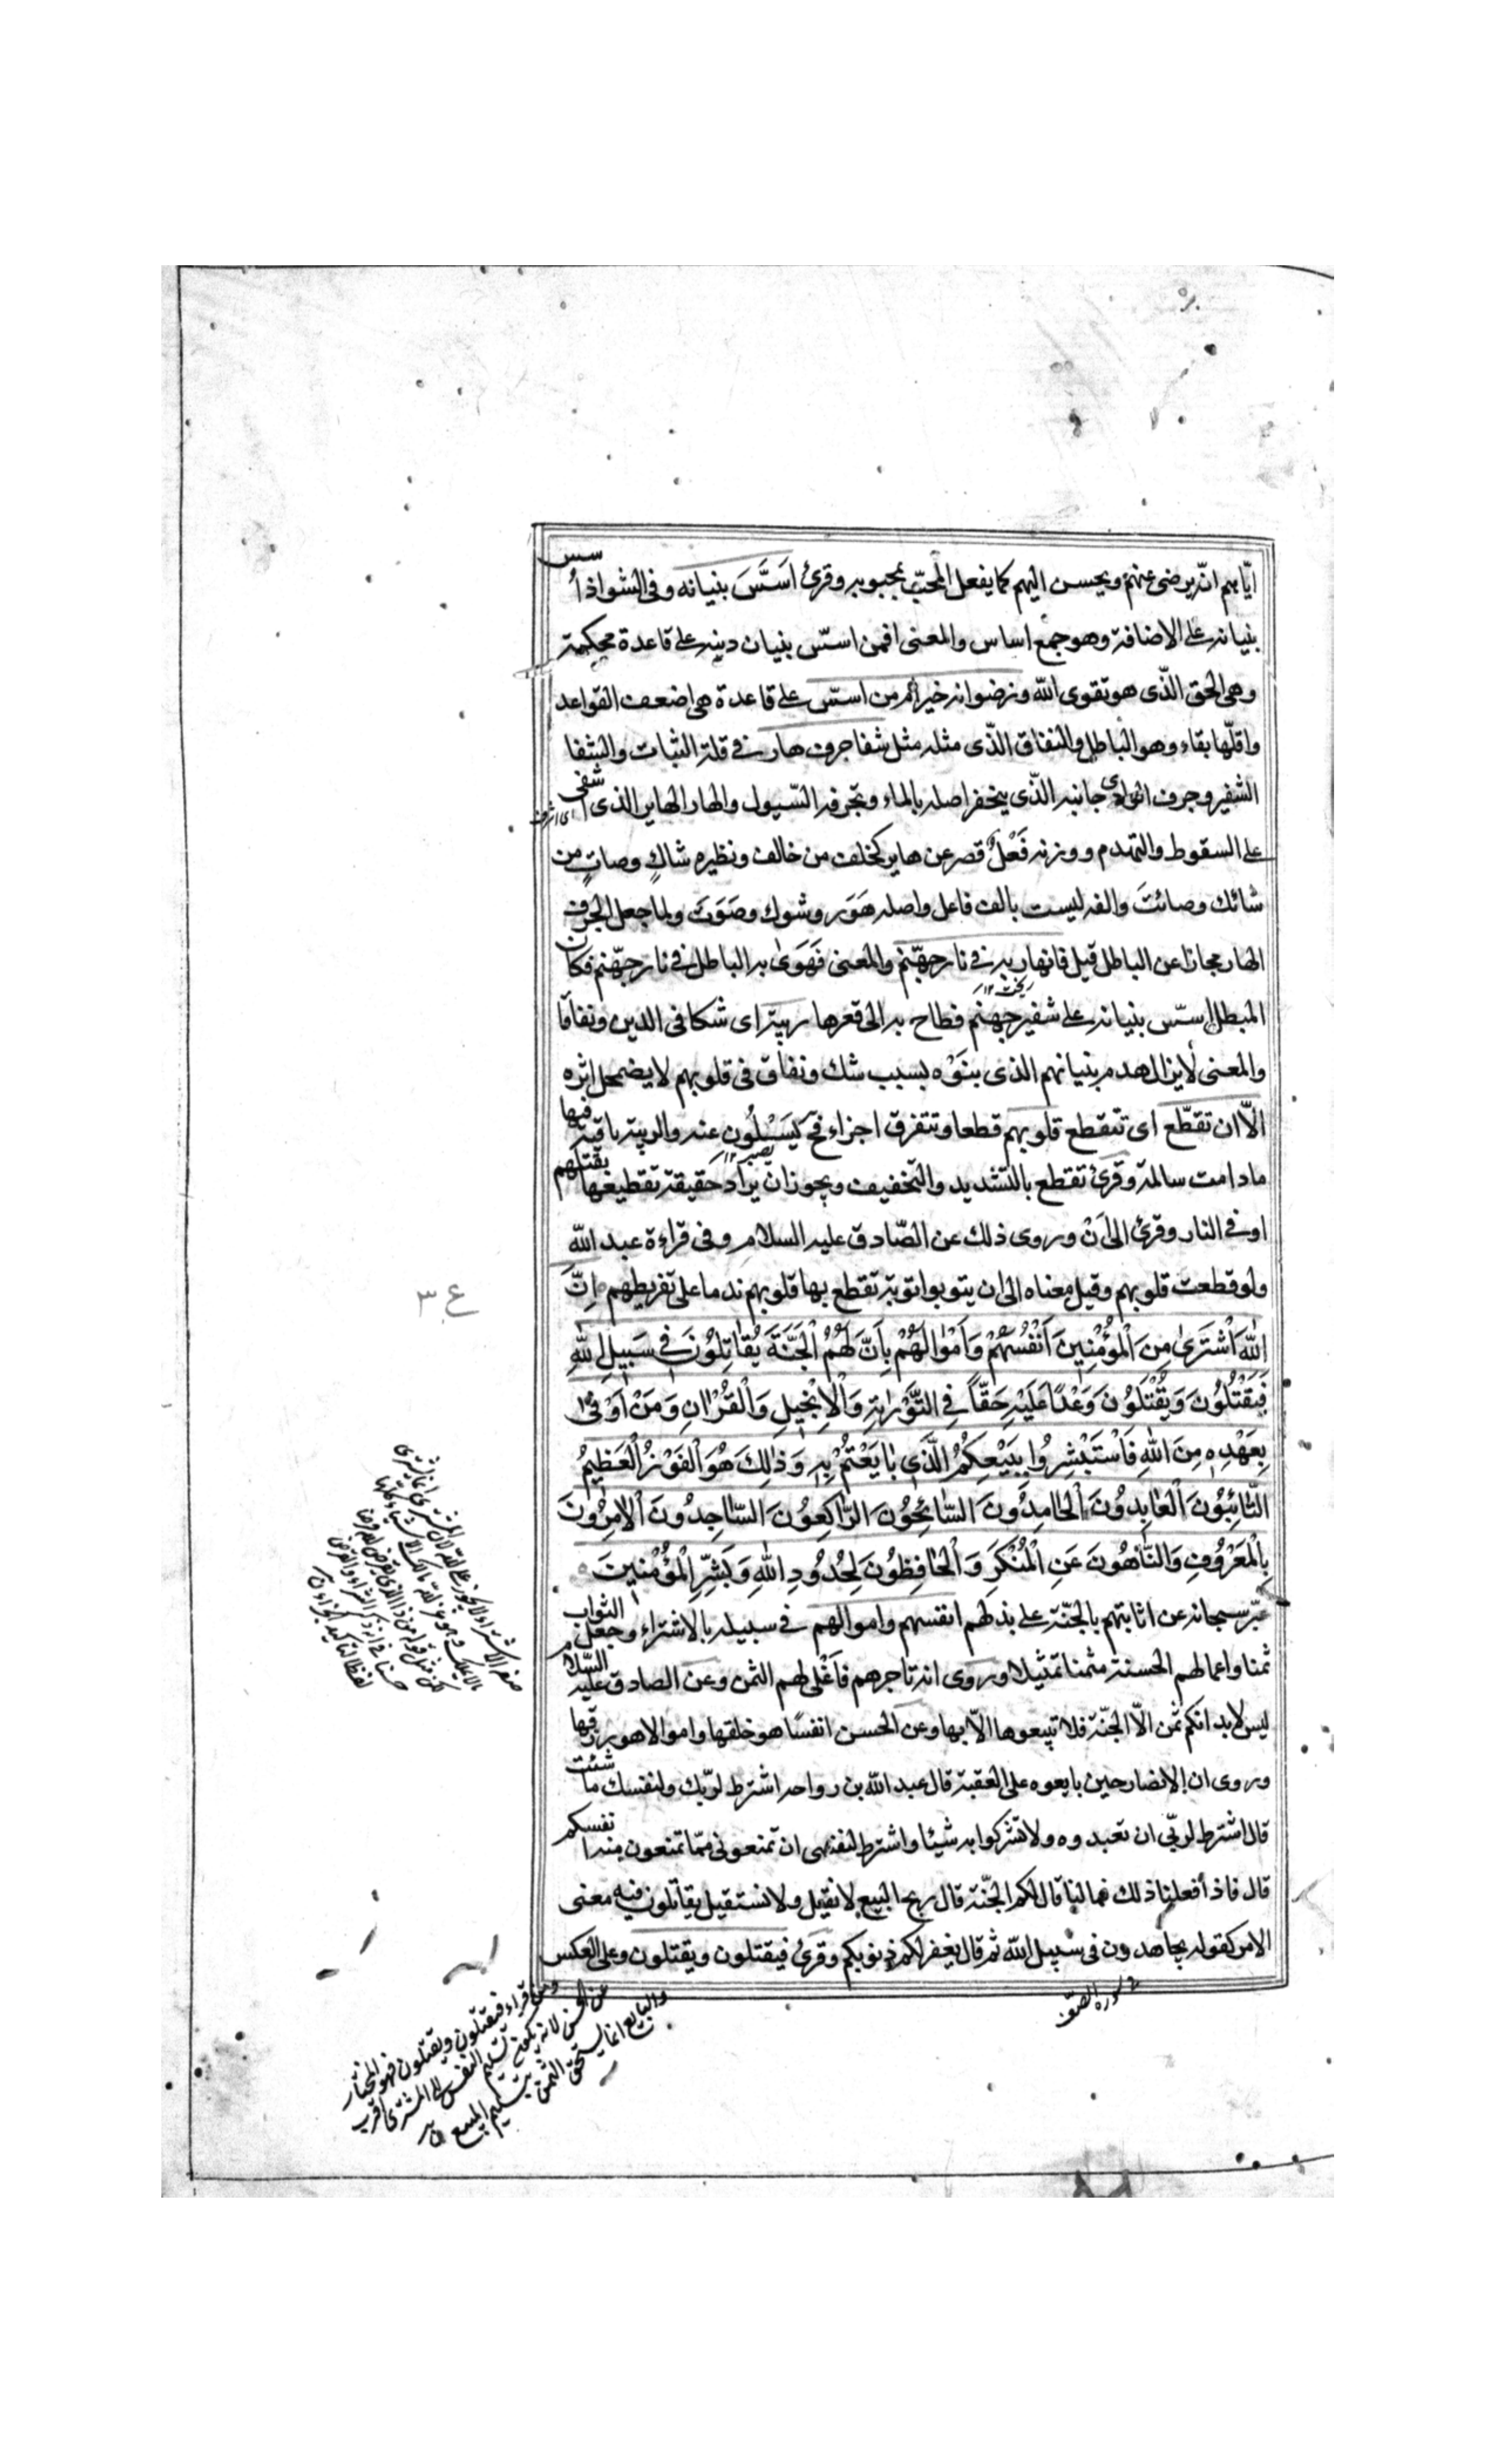 ايّاهم انّه يرضى عنهم ويحسن اليهم كما يفعل المحبّ بمحبوبه وقرئ اَسَّسَ بنيانه وفى الشواذ أسس
بنيانه على الاضافة وهو جمع اساس والمعنى افمن اسّس بنيان دينه على قاعدة محكمة
وهى الحق الّذى هو تقوى الله ورضوانه خير أم من اسّس على قاعدة هى اضعف القواعد
واقلّها بقاء وهو الباطل والنفاق الذّى مثله مثل شفا جرف هار فى قلة الثبات والشفا
الشفير وجرف الوادى جانبه الذّى ينحفر اصله بالماء وتجرفه السّيول والهار الهاير الذى اشفى
على السقوط والتهدم ووزنه فَعْلٌ قصر عن هاير كخلف من خالف ونظيره شاكٍ وصاتٍ من
شائك وصائتَ والفه ليست بالف فاعل واصله هَوَر وشوك وصَوَتَ ولما جعل الجرف
الهار مجازا عن الباطل قيل فانهار به فى نار جهّنم والمعنى فَهَوىٰ به الباطل فى نار جهّنم فكان
المبطل اسّس بنيانه على شفير جهنم فطاح به الى قعرها ريبة اى شكا فى الدين ونفاقا
والمعنى لايزال هدم بنيانهم الذى بنَوْه بسبب شك ونفاق فى قلوبهم لا يضمحل اثره
الّا ان تقطّع اى تتقطع قلوبهم قطعا وتتفرق اجزاء فح يَسَيْلُون عنه والريبة باقية فيها
مادامت سالمة وقرئ تقطع بالتشديد والتخفيف ويجوز ان يراد حقيقة تقطيعها بقتلهم
او فى النار وقرئ الى اَنْ وروى ذلك عن الصّادق عليه السلام وفى قراءة عبد الله
ولو قطعت قلوبهم وقيل معناه الى ان يتوبوا توبة تقطع بها قلوبهم ندما على تفريطهم اِنَّ
اللّٰهَ اشْتَرىٰ مِنَ الْمُؤْمِنِينَ اَنْفُسَهُمْ وَاَمْوالَهُمْ بِاَنَّ لَهُمُ الْجَنَّةَ يُقاتِلُونَ فِى سَبِيلِ اللّٰهِ
فَيَقْتُلُونَ وَيُقْتَلُونَ وَعْدًا عَلَيْهِ حَقّاً فِى التَّوْراةِ وَالْاِنْجِيلِ وَالْقُرْاٰنِ وَمَنْ اَوْفٰى
بِعَهْدِهِ مِنَ اللّٰهِ فَاسْتَبْشِرُوا بِبَيْعِكُمُ الَّذِى بٰايَعْتُمْ بِهِ وَذٰلِكَ هُوَ الْفَوْزُ الْعَظِيمُ
التّٰائِبُونَ الْعٰابِدُونَ الْحٰامِدُونَ السّٰائِحُونَ الرّٰاكِعُونَ السّٰاجِدُونَ الْاٰمِرُونَ
بِالْمَعْرُوفِ وَالنّٰاهُونَ عَنِ الْمُنْكَرِ وَالْحٰافِظُونَ لِحُدُودِ اللّٰهِ وَبَشِّرِ الْمُؤْمِنِينَ
عبّر سبحانه عن اثابتهم بالجنّة على بذلهم انفسهم واموالهم فى سبيله بالاشتراء وجعل الثواب
ثمنا واعمالهم الحسنة مثمنا تمثيلا وروى انه تاجرهم فاَغْلى لهم الثمن وعن الصادق عليه السّلام
ليس لابدانكم ثمن الاّ الجنّة فلا تبيعوها الاّ بها وعن الحسن انفسًا هو خلقها واموالا هو رزقها
وروى ان الانصار حين بايعوه على العقبة قال عبد الله بن رواحه اشترط لربّك ولنفسك ما شئت
قال اشترط لربّى ان تعبدوه ولا تشركوا به شيئا واشترط لنفسى ان تمنعونى ممّا تمنعون منه انفسكم
قال فاذا فعلنا ذلك فمالنا قال لكم الجنّة قال ربح البيع لا نقيل ولا نستقيل يقاتلون فيه معنى
الامر كقوله يجاهدون فى سبيل الله ثم قال يغفر لكم ذنوبكم وقرئ فيقتلون ويقتلون وعلى العكس
اى اشرف
ع ٣
سورة الصف
ومن قراء فيقتلون ويقتلون فهو المختار
عن الحسن لانه يكون تسليم النفس الى المشترى اقرب
والبايع انما يستحق الثمن بتسليم المبيع